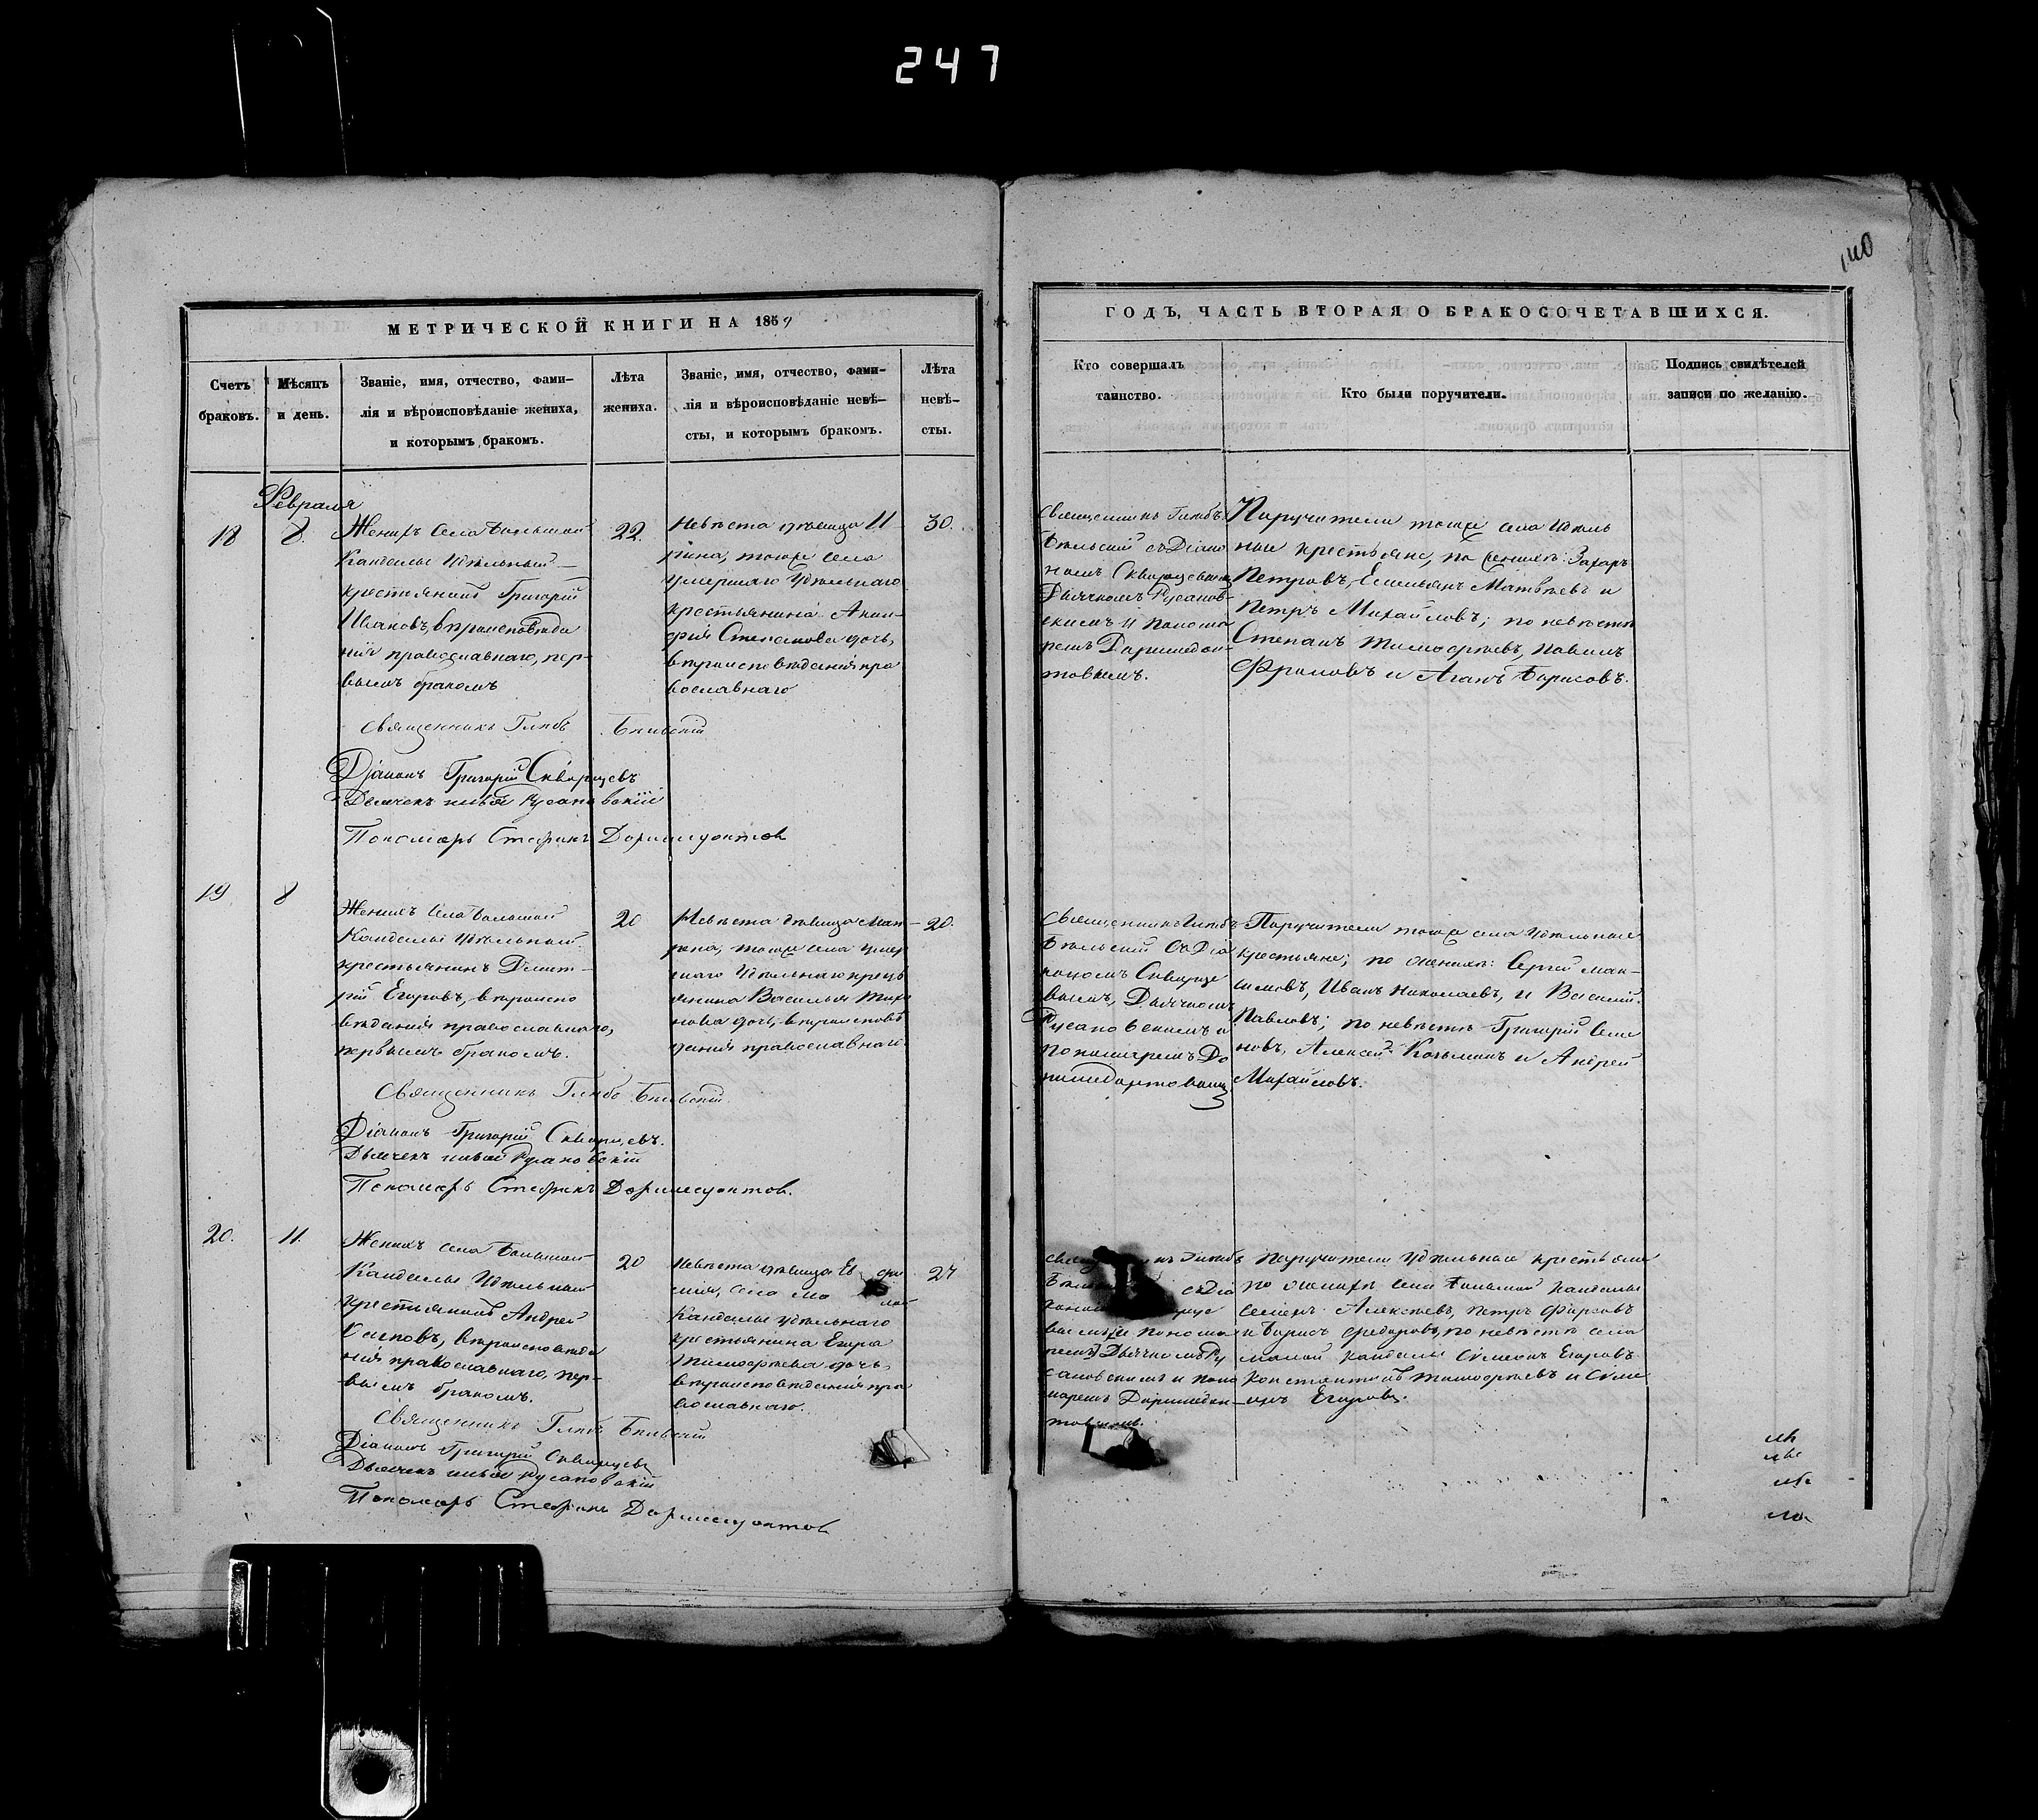 247
140
МЕТРИЧЕСКОЙ КНИГИ НА 1859
Счетъ браковъ.
Мѣсяцъ и день.
Званіе, имя, отчество, фами-
лія и вѣроисповѣданіе жениха,
и которымъ бракомъ.
Лѣта
жениха.
Званіе, имя, отчество, фами-
лія и вѣроисповѣданіе невѣ-
сты, и которымъ бракомъ.
Лѣта
невѣ-
сты.
Февраля
18
8.
Женихъ села Большой
Кандалы Удѣльный
крестьянинъ Григорій
Ивановъ, вѣроисповѣда
нія православнаго, пер-
вымъ бракомъ
22.
Невѣста дѣвица И
рина, тогоже села
умершаго Удѣльнаго
крестьянина
Степанова дочь,
вѣроисповѣданія пра
вославнаго
30.
Священникъ Глѣбъ Бѣльскій
Діаконъ Григорій Скворцевъ
Дьячекъ Русановскій
Пономарь Стефанъ Доримедонтов
19
8
Женихъ села Большой
Кандалы Удѣльный
крестьянинъ Димит-
рій Егоровъ, вѣроиспо
вѣданія православнаго,
первымъ бракомъ.
20
Невѣста дѣвица Мат-
рена, тогоже села умер
шаго Удѣльнаго крест
янина Василья
нова дочь, вѣроисповѣ
данія православнаго
20.
Священникъ Глѣбъ Бѣльскій
Діаконъ Григорій Скворцевъ.
Дьячекъ Русановскій
Пономарь Стефанъ Доримедонтов.
20.
11.
Женихъ села Большой
Кандалы Удѣльный
крестьянинъ Андрей
Осиповъ, вѣроисповѣда
нія православнаго, пер-
вымъ бракомъ.
20
Невѣста дѣвица
села
Кандалы Удѣльнаго
крестьянина Егора
Тимофѣева дочь,
вѣроисповѣданія пра
вославнаго.
Священникъ Глѣбъ Бѣльскій
Діаконъ Григорій Скворцевъ
Дьячекъ Русановскій
Пономарь Стефанъ Доримедонтов
ГОДЪ, ЧАСТЬ ВТОРАЯ О БРАКОСОЧЕТАВШИХСЯ.
Кто совершалъ
таинство.
Кто были поручители.
Подпись свидѣтелей
записи по желанію.
Священникъ Глѣбъ
Бѣльскій съ Діако
номъ Скворцевымъ
Дьячкомъ Русанов-
скимъ и Понома
ремъ Доримедон-
товымъ.
Поручители тогоже села Удѣль
ные крестьяне, по женихѣ: Захаръ
Петровъ, Емельянъ Матвѣевъ и
Петръ Михайловъ; по невѣстѣ
Степанъ Тимофѣевъ, Павелъ
Фроловъ и Борисовъ.
Священникъ Глѣбъ
Бѣльскій съ Діа
кономъ Скворце
вымъ, Дьячкомъ
Русановскимъ и
пономаремъ До
римедонтовымъ
Поручители тогоже села Удѣльные
крестьяне; по женихѣ: Сергей Мак-
симовъ, Иванъ Николаевъ, и Василій
Павловъ; по невѣстѣ Григорій Семе
новъ, Алексей Козьминъ и Андрей
Михайловъ.
Глѣбъ
съ Діа
Дьячкомъ Ру
сановскимъ и поно
маремъ Доримедон-
товымъ.
Поручители Удѣльные крестьяне
по женихѣ села Большой Кандалы
Алексѣевъ, Петръ Фирсовъ
и Борисъ Федоровъ, по невѣстѣ села
Малой Кандалы Симеонъ Егоровъ
Константинъ Тимофѣевъ и Симе
онъ Егоровъ.